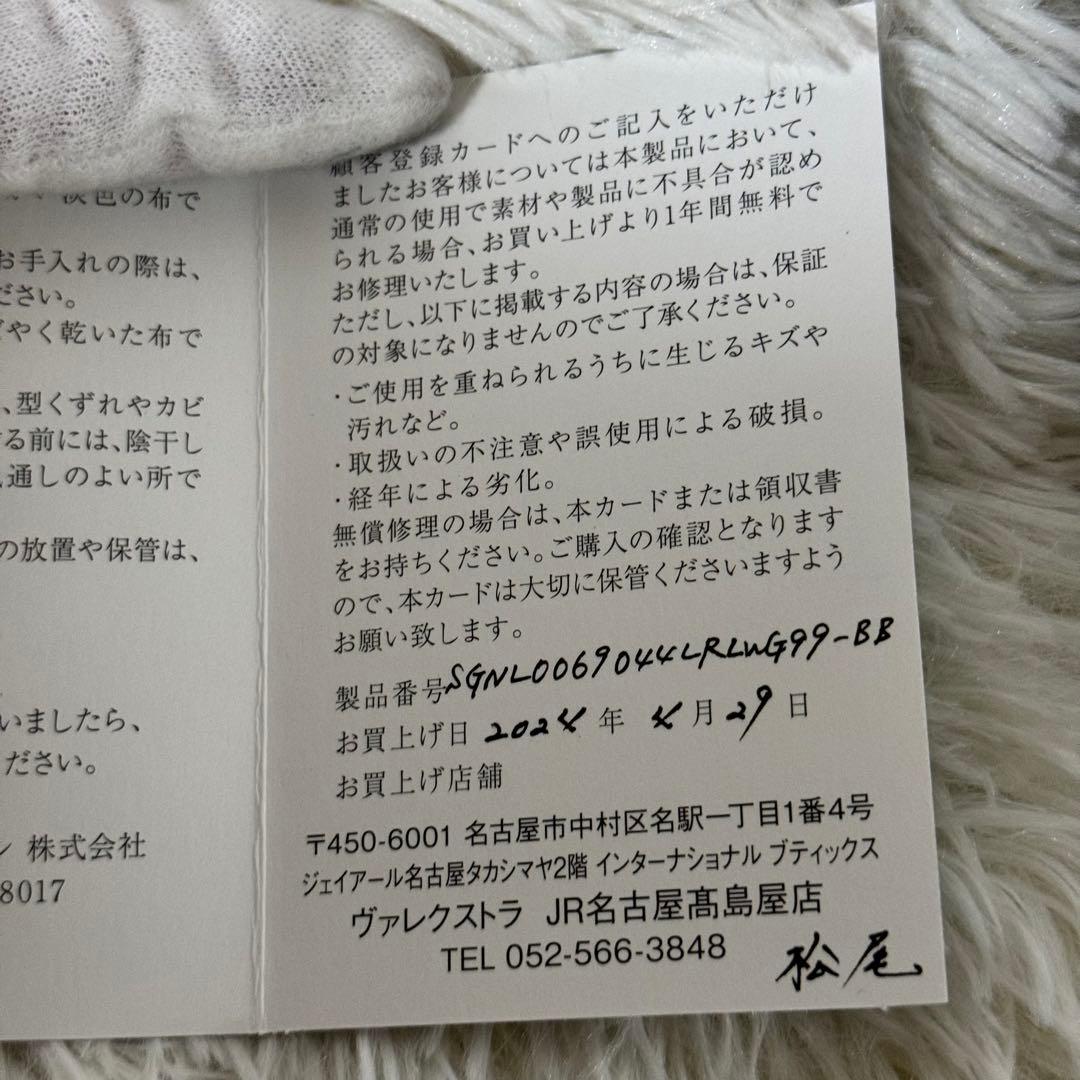 淡色の布で
お手入れの際は、
ださい。
やく乾いた布で
、型くずれやカビ
る前には、陰干し
通しのよい所で
の放置や保管は、
いましたら、
ださい。
ン 株式会社
8017
顧客登録カードへのご記入をいただけ
ましたお客様については本製品において、
通常の使用で素材や製品に不具合が認め
られる場合、お買い上げより1年間無料で
お修理いたします。
ただし、以下に掲載する内容の場合は、保証
の対象になりませんのでご了承ください。
・ご使用を重ねられるうちに生じるキズや
汚れなど。
・取扱いの不注意や誤使用による破損。
・経年による劣化。
無償修理の場合は、本カードまたは領収書
をお持ちください。ご購入の確認となります
ので、本カードは大切に保管くださいますよう
お願い致します。
製品番号 SGNL0069044LRLWG99-BB
お買上げ日 2024 年 4 月 29 日
お買上げ店舗
〒450-6001 名古屋市中村区名駅一丁目1番4号
ジェイアール名古屋タカシマヤ2階 インターナショナル ブティックス
ヴァレクストラ JR名古屋髙島屋店
TEL 052-566-3848
松尾